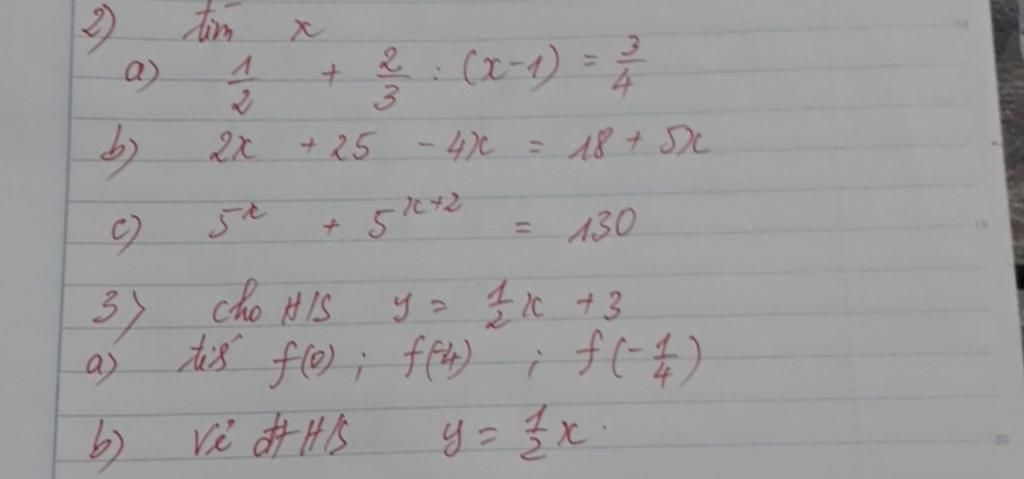 2) tìm x
a) 1/2 + 2/3 : (x-1) = 3/4
b) 2x + 25 - 4x = 18 + 5x
c) 5^x + 5^(x+2) = 130
3) cho H/S y = 1/2 x + 3
a) f(0) ; f(-4) ; f(-1/4)
b) vẽ đt H/S y = 1/2 x.